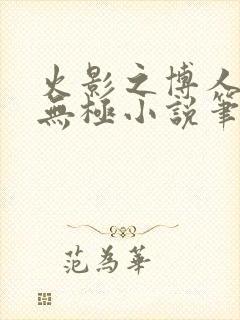 火影之博人
無極小說筆
范為華